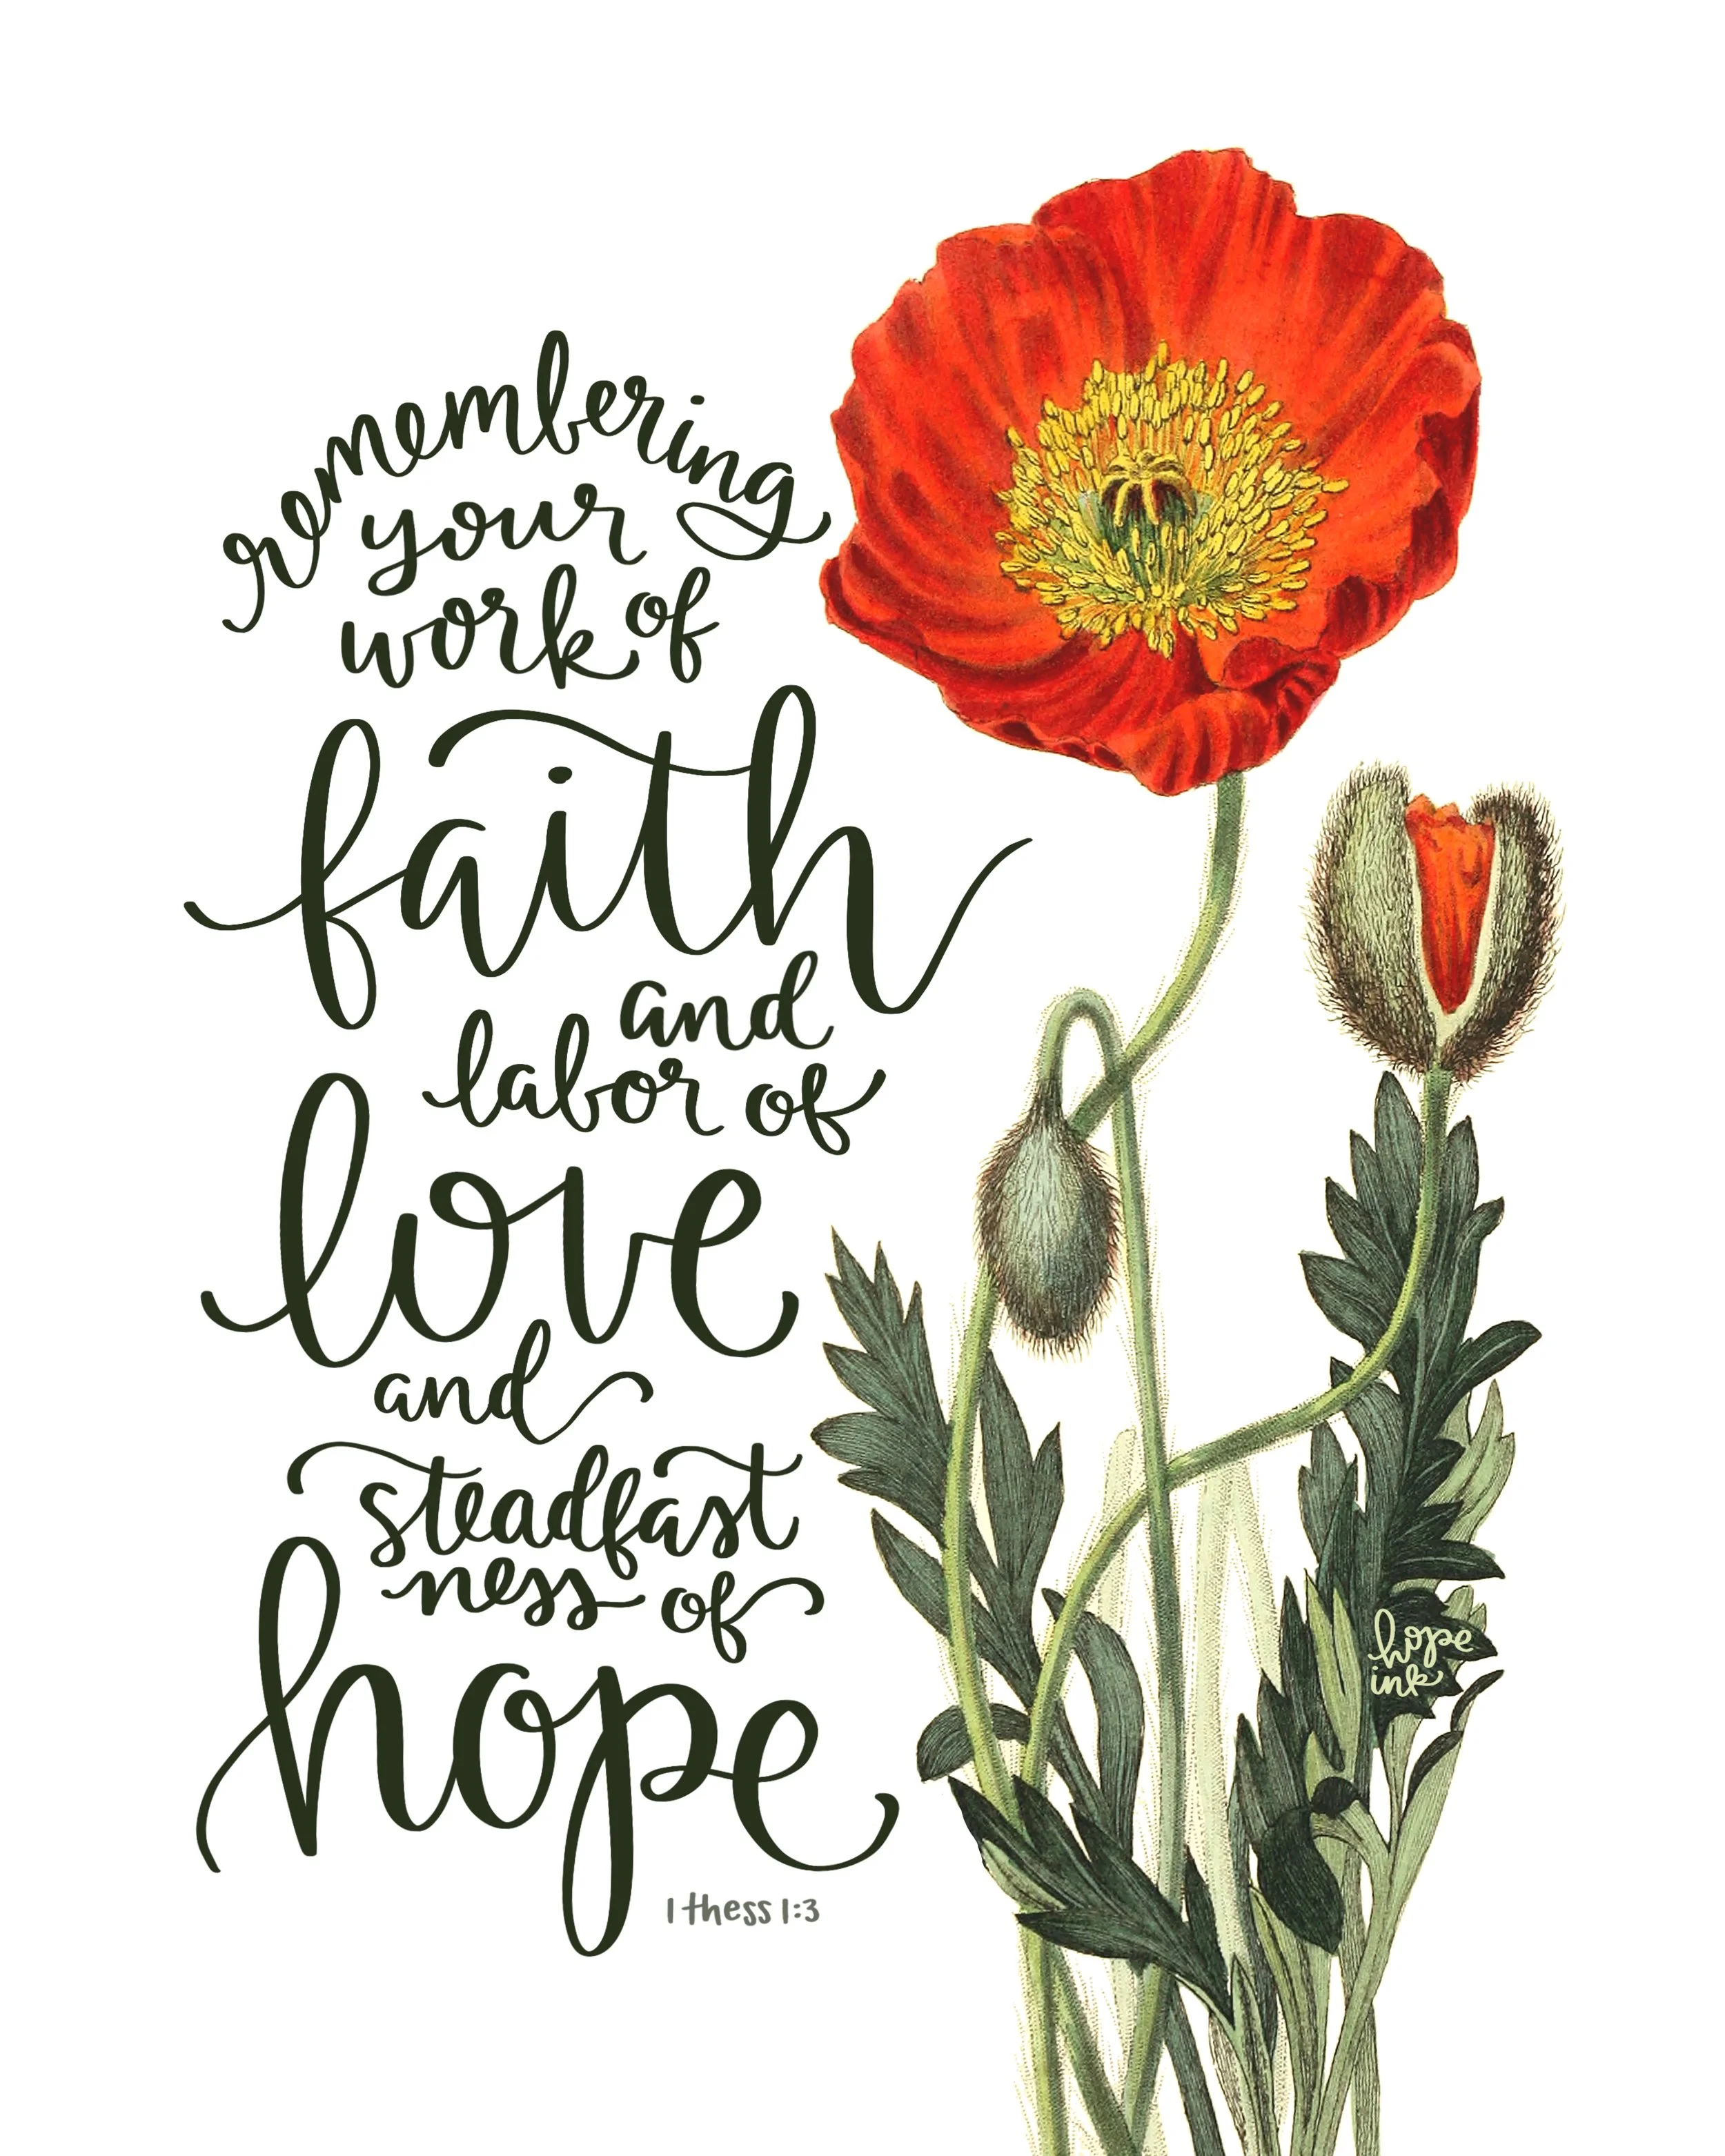 remembering
your
work of
faith
and
labor of
love
and
steadfast
ness of
hope
1 thess 1:3
hope
ink